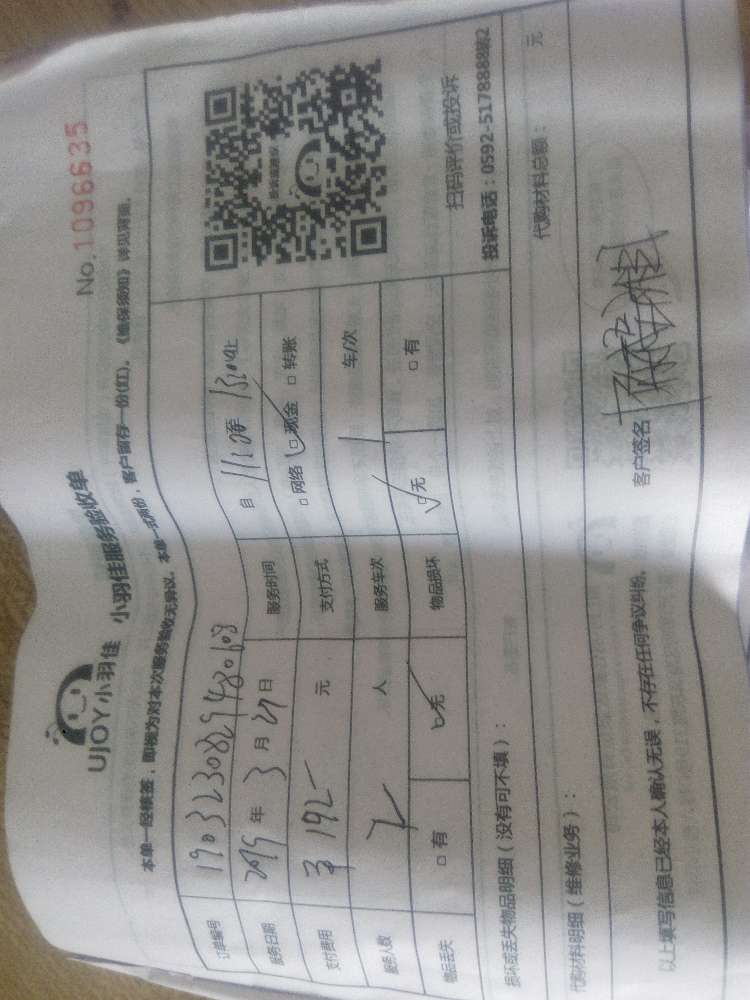 No.1096635
UJOY小羽佳 小羽佳服务验收单
本单一经核签，即视为对本次服务验收无异议。本单一式两份，客户留存一份(红)。《确保须知》详见背面。
订单编号 190323082948010
服务日期 2019 年 3 月 27 日 服务时间 自 至 止
支付费用 192 元 支付方式 □网络 □现金 □转账
服务人数 2 人 服务车次 1 车/次
物品丢失 □有 □无 物品损坏 □无 □有
扫码评价或投诉
投诉电话：0592-5178888转2
损坏或丢失物品明细（没有可不填）：
代购材料明细（维修业务）： 代购材料总额： 元
以上填写信息已经本人确认无误，不存在任何争议纠纷。 客户签名